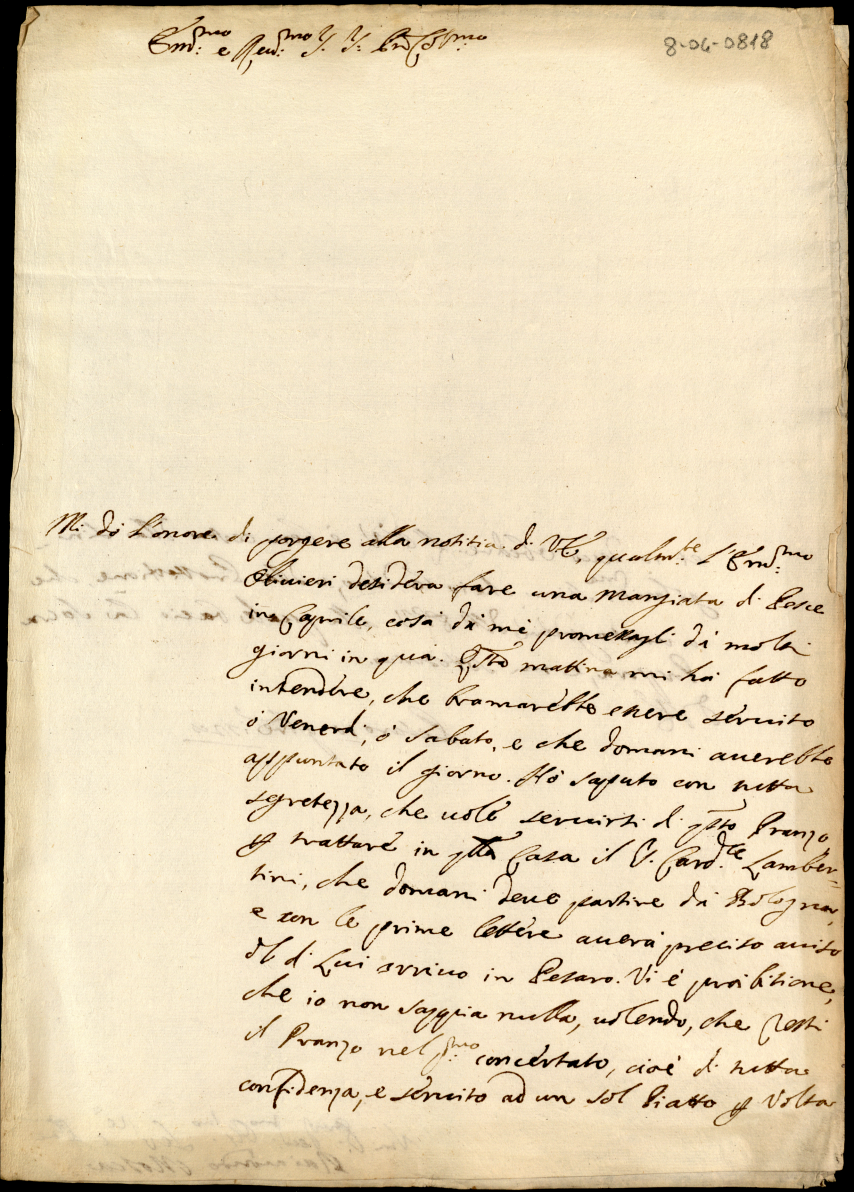 Em.mo e Reu.mo S. S. Pne Col.mo
8-04-0818
Mi dò l'onore di porgere alla notitia di V.E, qualm.te l'Em.mo
Oliuieri desidera fare una mangiata di Pesce
in Caprile, cosa da mè promessagli da molti
giorni in quà. Q.sta mattina mi hà fatto
intendere, che bramarebbe essere seruito
ò Venerdì, ò sabato, e che domani auerebbe
appuntato il giorno. Hò saputo con tutta
segretezza, che uole seruirsi di q.sto Pranzo
p trattare in q.lla Casa il S. Card.le Lamber-
tini, che domani deue partire da Bologna,
e con le prime lettere auerà preciso auiso
del di Lui arriuo in Pesaro. Vi è proibitione,
che io non sappia nulla, uolendo, che resti
il Pranzo nel p.mo concertato, cioè di tutta
confidenza, e seruito ad un sol Piatto p Volta